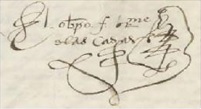 El obpo fr bme
de las Casas